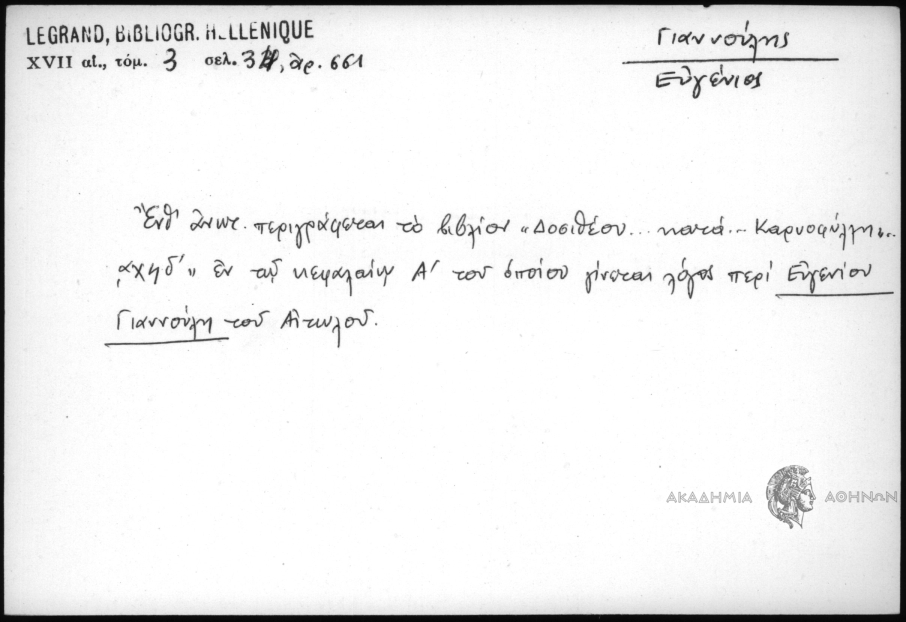 LEGRAND, BIBLIOGR. HELLENIQUE
XVII αἰ., τόμ. 3 σελ. 34, ἀρ. 661
Γιαννούλης
Εὐγένιος
Ἔνθ' ἀνωτ. περιγράφεται τὸ βιβλίον «Δοσιθέου... κατὰ... Καρυοφύλλη...
͵αχϟδ'» ἐν τῷ κεφαλαίῳ Α' τοῦ ὁποίου γίνεται λόγος περὶ Εὐγενίου
Γιαννούλη τοῦ Αἰτωλοῦ.
ΑΚΑΔΗΜΙΑ ΑΘΗΝΩΝ